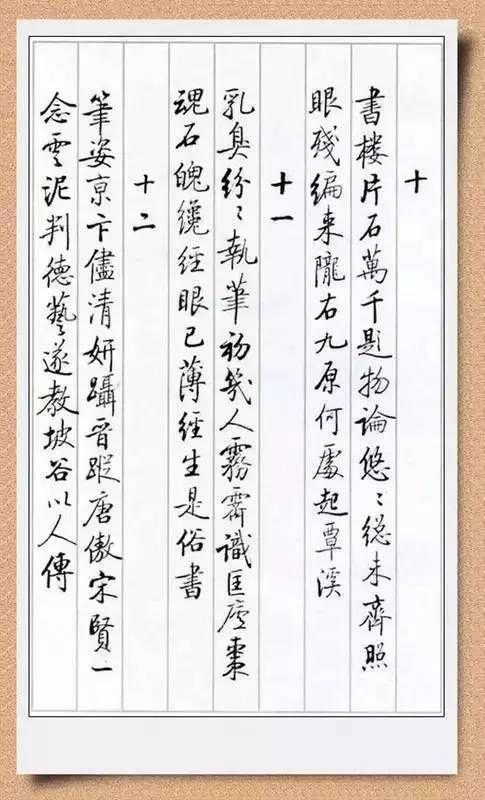 十
書楼片石萬千題物論悠〻総未齊照
眼殘編来隴右九原何處起覃溪
十一
乳臭紛〻執筆初幾人霧霽識匡廬棗
魂石魄纔經眼已薄經生是俗書
十二
筆姿京卞儘清妍躡晉蹤唐傲宋賢一
念雲泥判德藝遂教坡谷以人傳